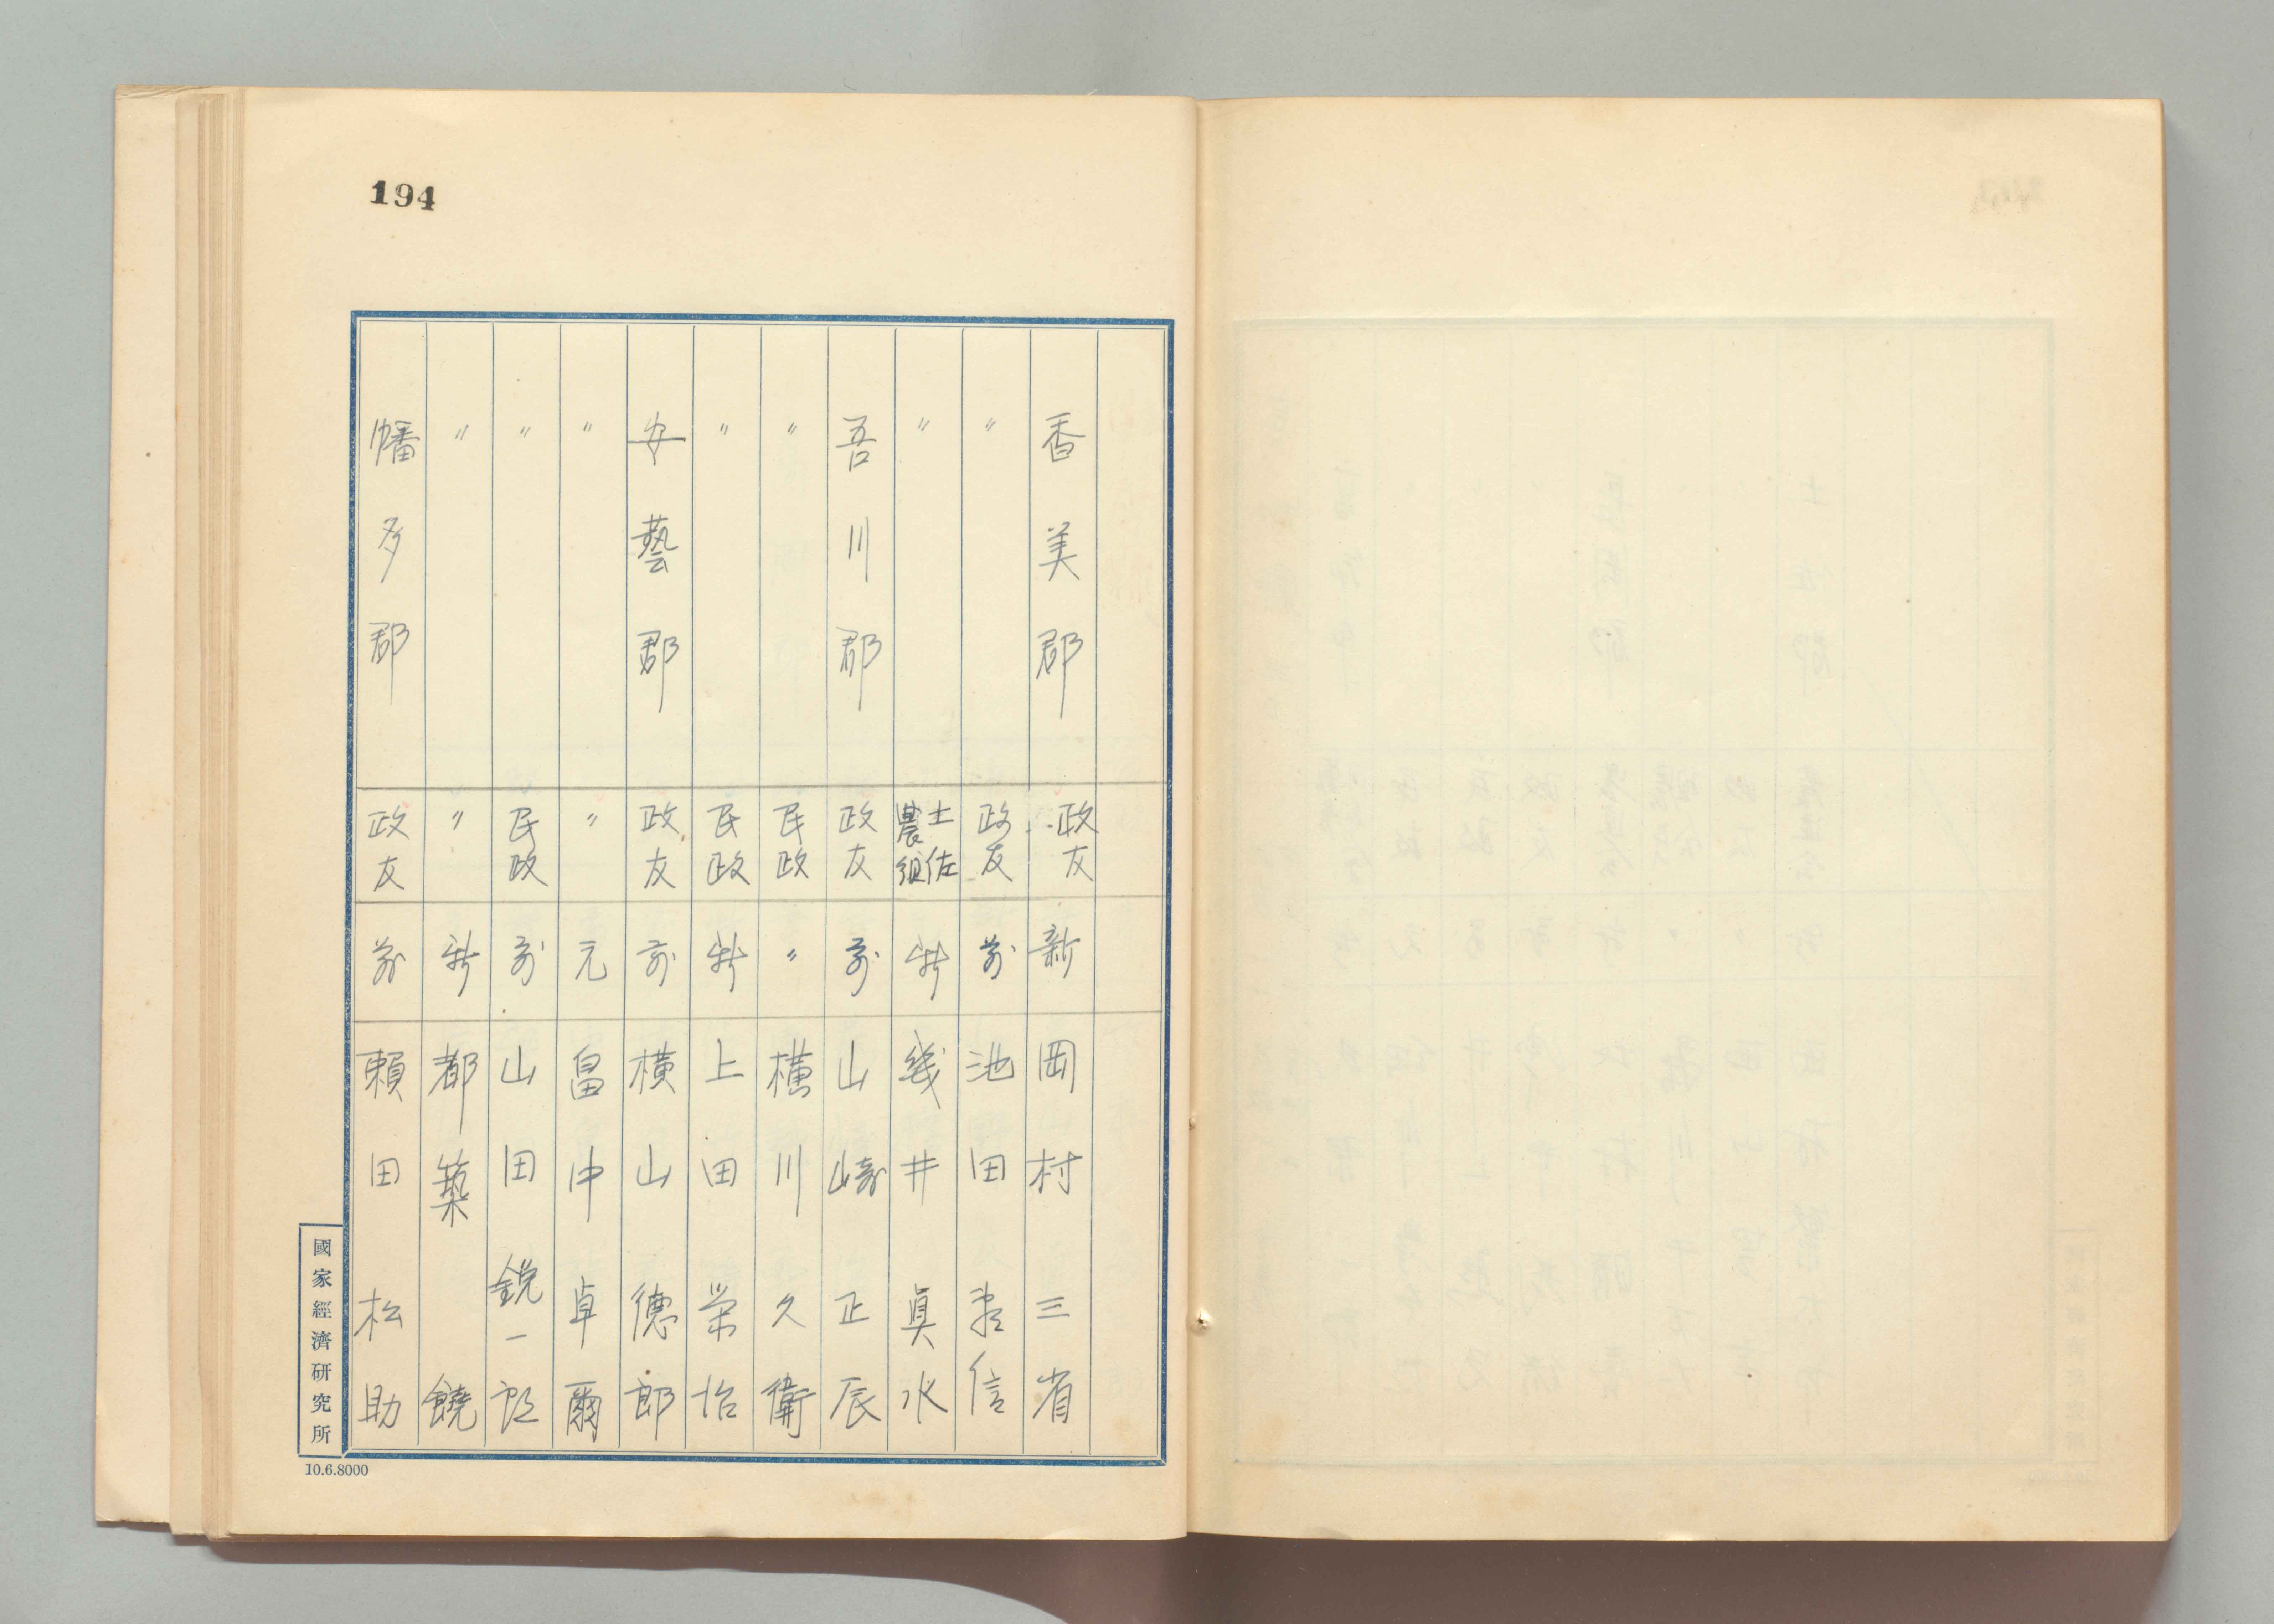 194
香美郡 政友 新 岡村三省
〃 政友 前 池田 信
〃 土佐農組 新 幾井眞水
吾川郡 政友 前 山崎正辰
〃 民政 〃 横川久衛
〃 民政 新 上田栄治
安藝郡 政友 前 横山德郎
〃 〃 元 畠中卓爾
〃 民政 前 山田鋭一郎
〃 〃 新 都築 饒
幡多郡 政友 前 頼田松助
國家經濟研究所
10.6.8000